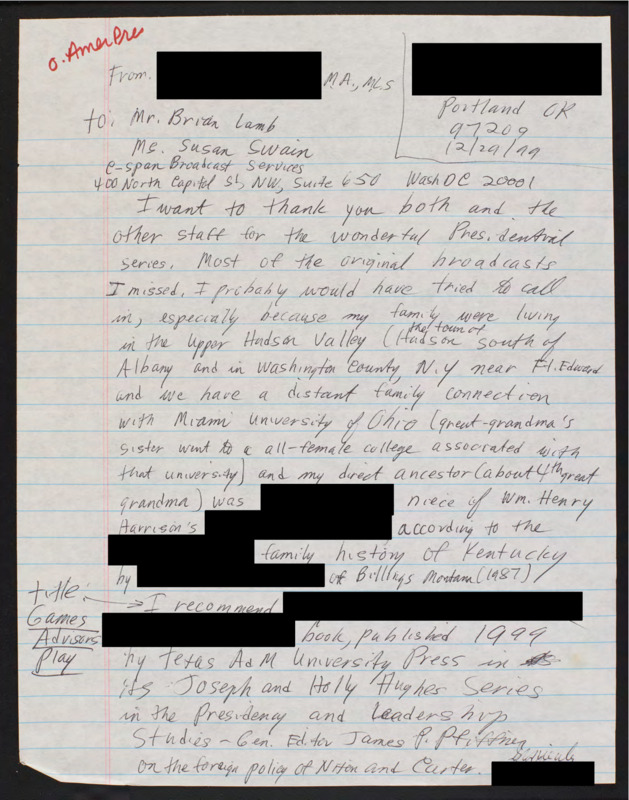 O. AmerPres
From. M.A., MLS
Portland OR
97209
12/29/99
to: Mr. Brian Lamb
Ms. Susan Swain
C-span Broadcast Services
400 North Capitol St, NW, Suite 650 Wash DC 20001
I want to thank you both and the
other staff for the wonderful Presidential
series. Most of the original broadcasts
I missed. I probably would have tried to call
in, especially because my family were living
in the Upper Hudson Valley (the town of Hudson south of
Albany and in Washington County, N.Y near Ft. Edward
and we have a distant family connection
with Miami University of Ohio (great-grandma's
sister went to a all-female college associated with
that university) and my direct ancestor (about 4th great
grandma) was niece of Wm. Henry
Harrison's according to the
family history of Kentucky
by of Billings Montana (1987)
title
I recommend
Games
Advisors
Play
book, published 1999
by Texas A&M University Press in
its Joseph and Holly Hughes Series
in the Presidency and Leadership
Studies - Gen. Editor James P. Pfiffner
on the foreign policy of Nixon and Carter.